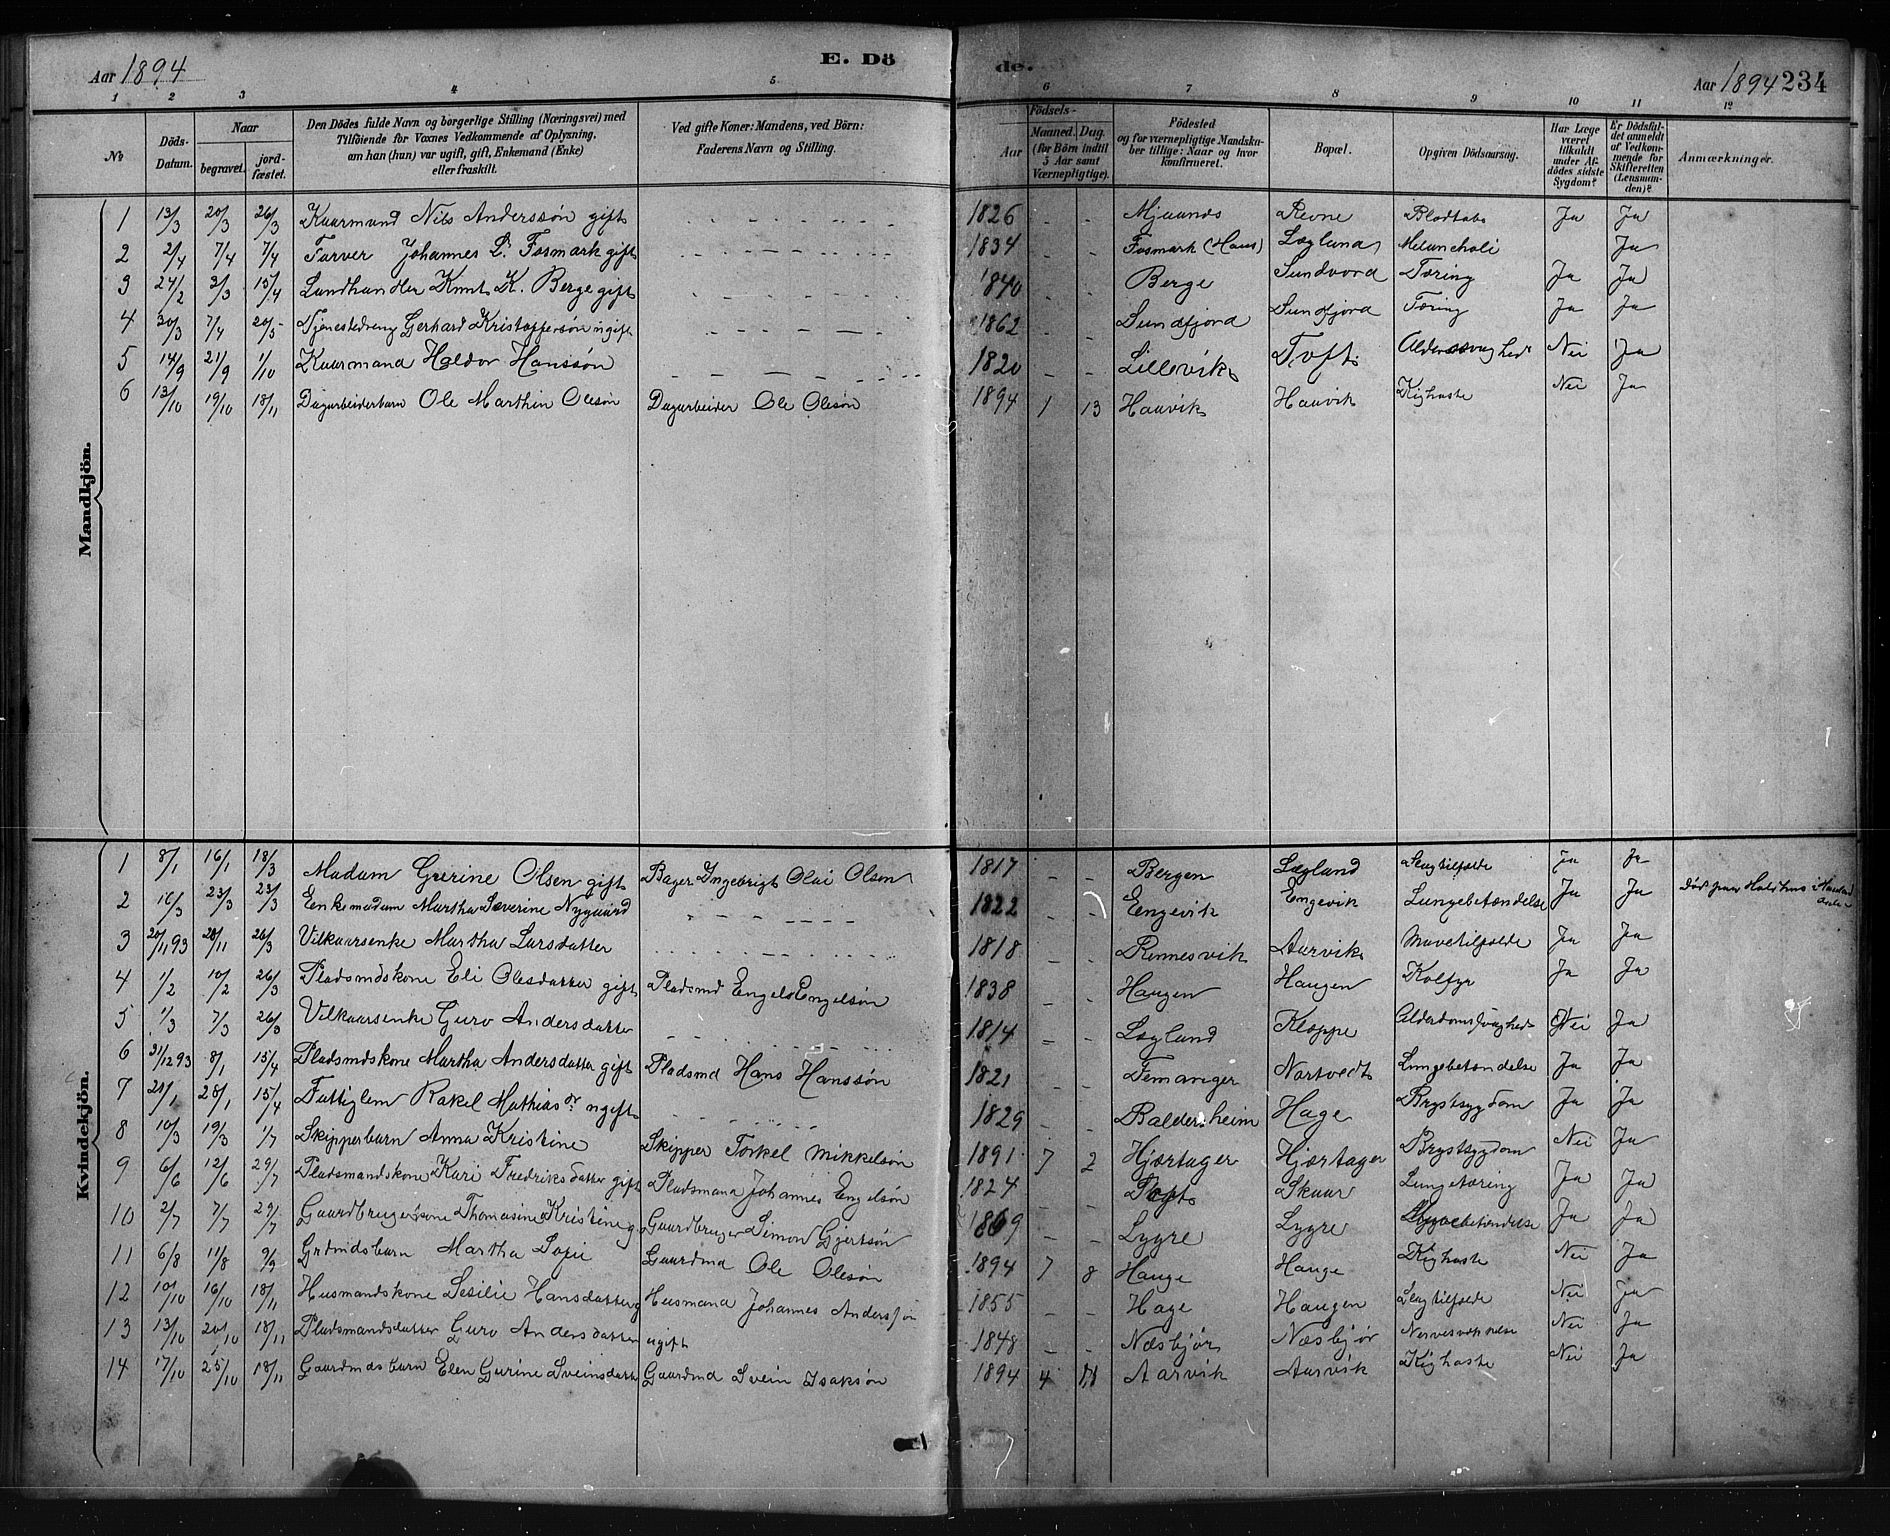 Aar 1894 E. Dö de. Aar 1894 234
1 2 3 4 5 6 7 8 9 10 11 12
No
Döds-Datum.
Naar
begravet.
jord-fæstet.
Den Dödes fulde Navn og borgerlige Stilling (Næringsvei) med
Tilföiende for Voxnes Vedkommende af Oplysning,
om han (hun) var ugift, gift, Enkemand (Enke)
eller fraskilt.
Ved gifte Koner: Mandens, ved Börn:
Faderens Navn og Stilling.
Födsels-
Aar
Maaned. Dag.
(for Börn indtil
5 Aar samt
Værnepligtige).
Födested
og for værnepligtige Mandska-
ber tillige: Naar og hvor
konfirmeret.
Bopæl.
Opgiven Dödsaarsag.
Har Læge
været
tilkaldt
under Af-
dödes sidste
Sygdom?
Er Dödsfal-
det anmeldt
af Vedkom-
mende for
Skifteretten
(Lensman-
den)?
Anmærkninger.
Mandkjön.
1 13/3 20/3 26/3 Kaarmand Nils Anderssön gift 1826 - - Mjaanæs Revne Blodtab Ja Ja
2 2/4 7/4 7/4 Farver Johannes L. Fosmark gift 1834 - - Fosmark (Haus) Lægland Melancholi Ja
3 24/2 3/3 15/4 Landhandler Knut K. Berge gift 1840 - - Berge Sundvord Tæring Ja Ja
4 30/3 7/4 20/5 Tjenestedreng Gerhard Kristoffersön ugift 1862 - - Sundfjord Sundfjord Tæring Ja Ja
5 14/9 21/9 1/10 Kaarmand Haldor Hanssön 1820 - - Lillevik Toft Alderssvaghed Nei Ja
6 13/10 19/10 18/11 Dagarbeiderbarn Ole Marthin Olesön Dagarbeider Ole Olesön 1894 1 13 Haavik Haavik Kighoste Nei Ja
Kvindekjön.
1 8/1 16/1 18/3 Madam Grerine Olsen gift Bager Ingebrigt Olai Olsen 1817 - - Bergen Lægland Slagtilfælde Ja Ja
2 16/3 23/3 23/3 Enkemadam Martha Severine Nygaard 1822 - - Engevik Engevik Lungebetændelse Ja Ja
3 20/11 93 28/11 26/3 Vilkaarsenke Martha Larsdatter 1818 - - Rennesvik Aarvik Mavetilfælde Ja Ja
4 1/2 10/2 26/3 Pladsmdskone Eli Olesdatter gift Pladsmd Engel Engelsön 1838 - - Haugen Haugen Koldfyr Ja Ja
5 1/3 7/3 26/3 Vilkaarsenke Guro Andersdatter 1814 - - Lægland Kloppe Alderdomssvaghed Nei Ja
6 31/12 93 8/1 15/4 Pladsmdskone Martha Andersdatter gift Pladsmd Hans Hanssön 1821 - - Femanger Nortvedt Lungebetændelse Ja Ja
7 21/1 28/1 15/4 Fattiglem Rakel Mathiasdr ugift 1829 Baldersheim Hage Brystsygdom Ja Ja
8 10/3 19/3 1/7 Skipperbarn Anna Kristine Skipper Torkel Mikkelsön 1891 7 2 Hjærtager Hjærtager Brystsygdom Nei Ja
9 6/6 12/6 29/7 Pladsmandskone Kari Fredriksdatter gift Pladsmand Johannes Engelsön 1824 - - Toft Skaar Lungetæring Ja Ja
10 2/7 7/7 29/7 Gaardbrugerskone Thomasine Kristine g Gaardbruger Simon Gjertsön 1869 - - Lygre Lygre Ja Ja
11 6/8 11/8 9/9 Grdmdsbarn Martha Sofie Gaardmd Ole Olesön 1894 7 8 Hauge Hauge Kighoste Nei Ja
12 10/10 16/10 18/11 Husmandskone Sesilie Hansdatter g Husmand Johannes Anderssön 1855 - - Hage Haugen Slagtilfælde Nei Ja
13 13/10 20/10 18/11 Pladsmandsdatter Guro Andersdatter ugift 1848 - - Næsbjør Næsbjør Nervesvækkelse Nei Ja
14 17/10 25/10 18/11 Gaardmdsbarn Elen Gurine Sveinsdatter Gaardmd Svein Isaksön 1894 4 Aarvik Aarvik Kighoste Nei Ja